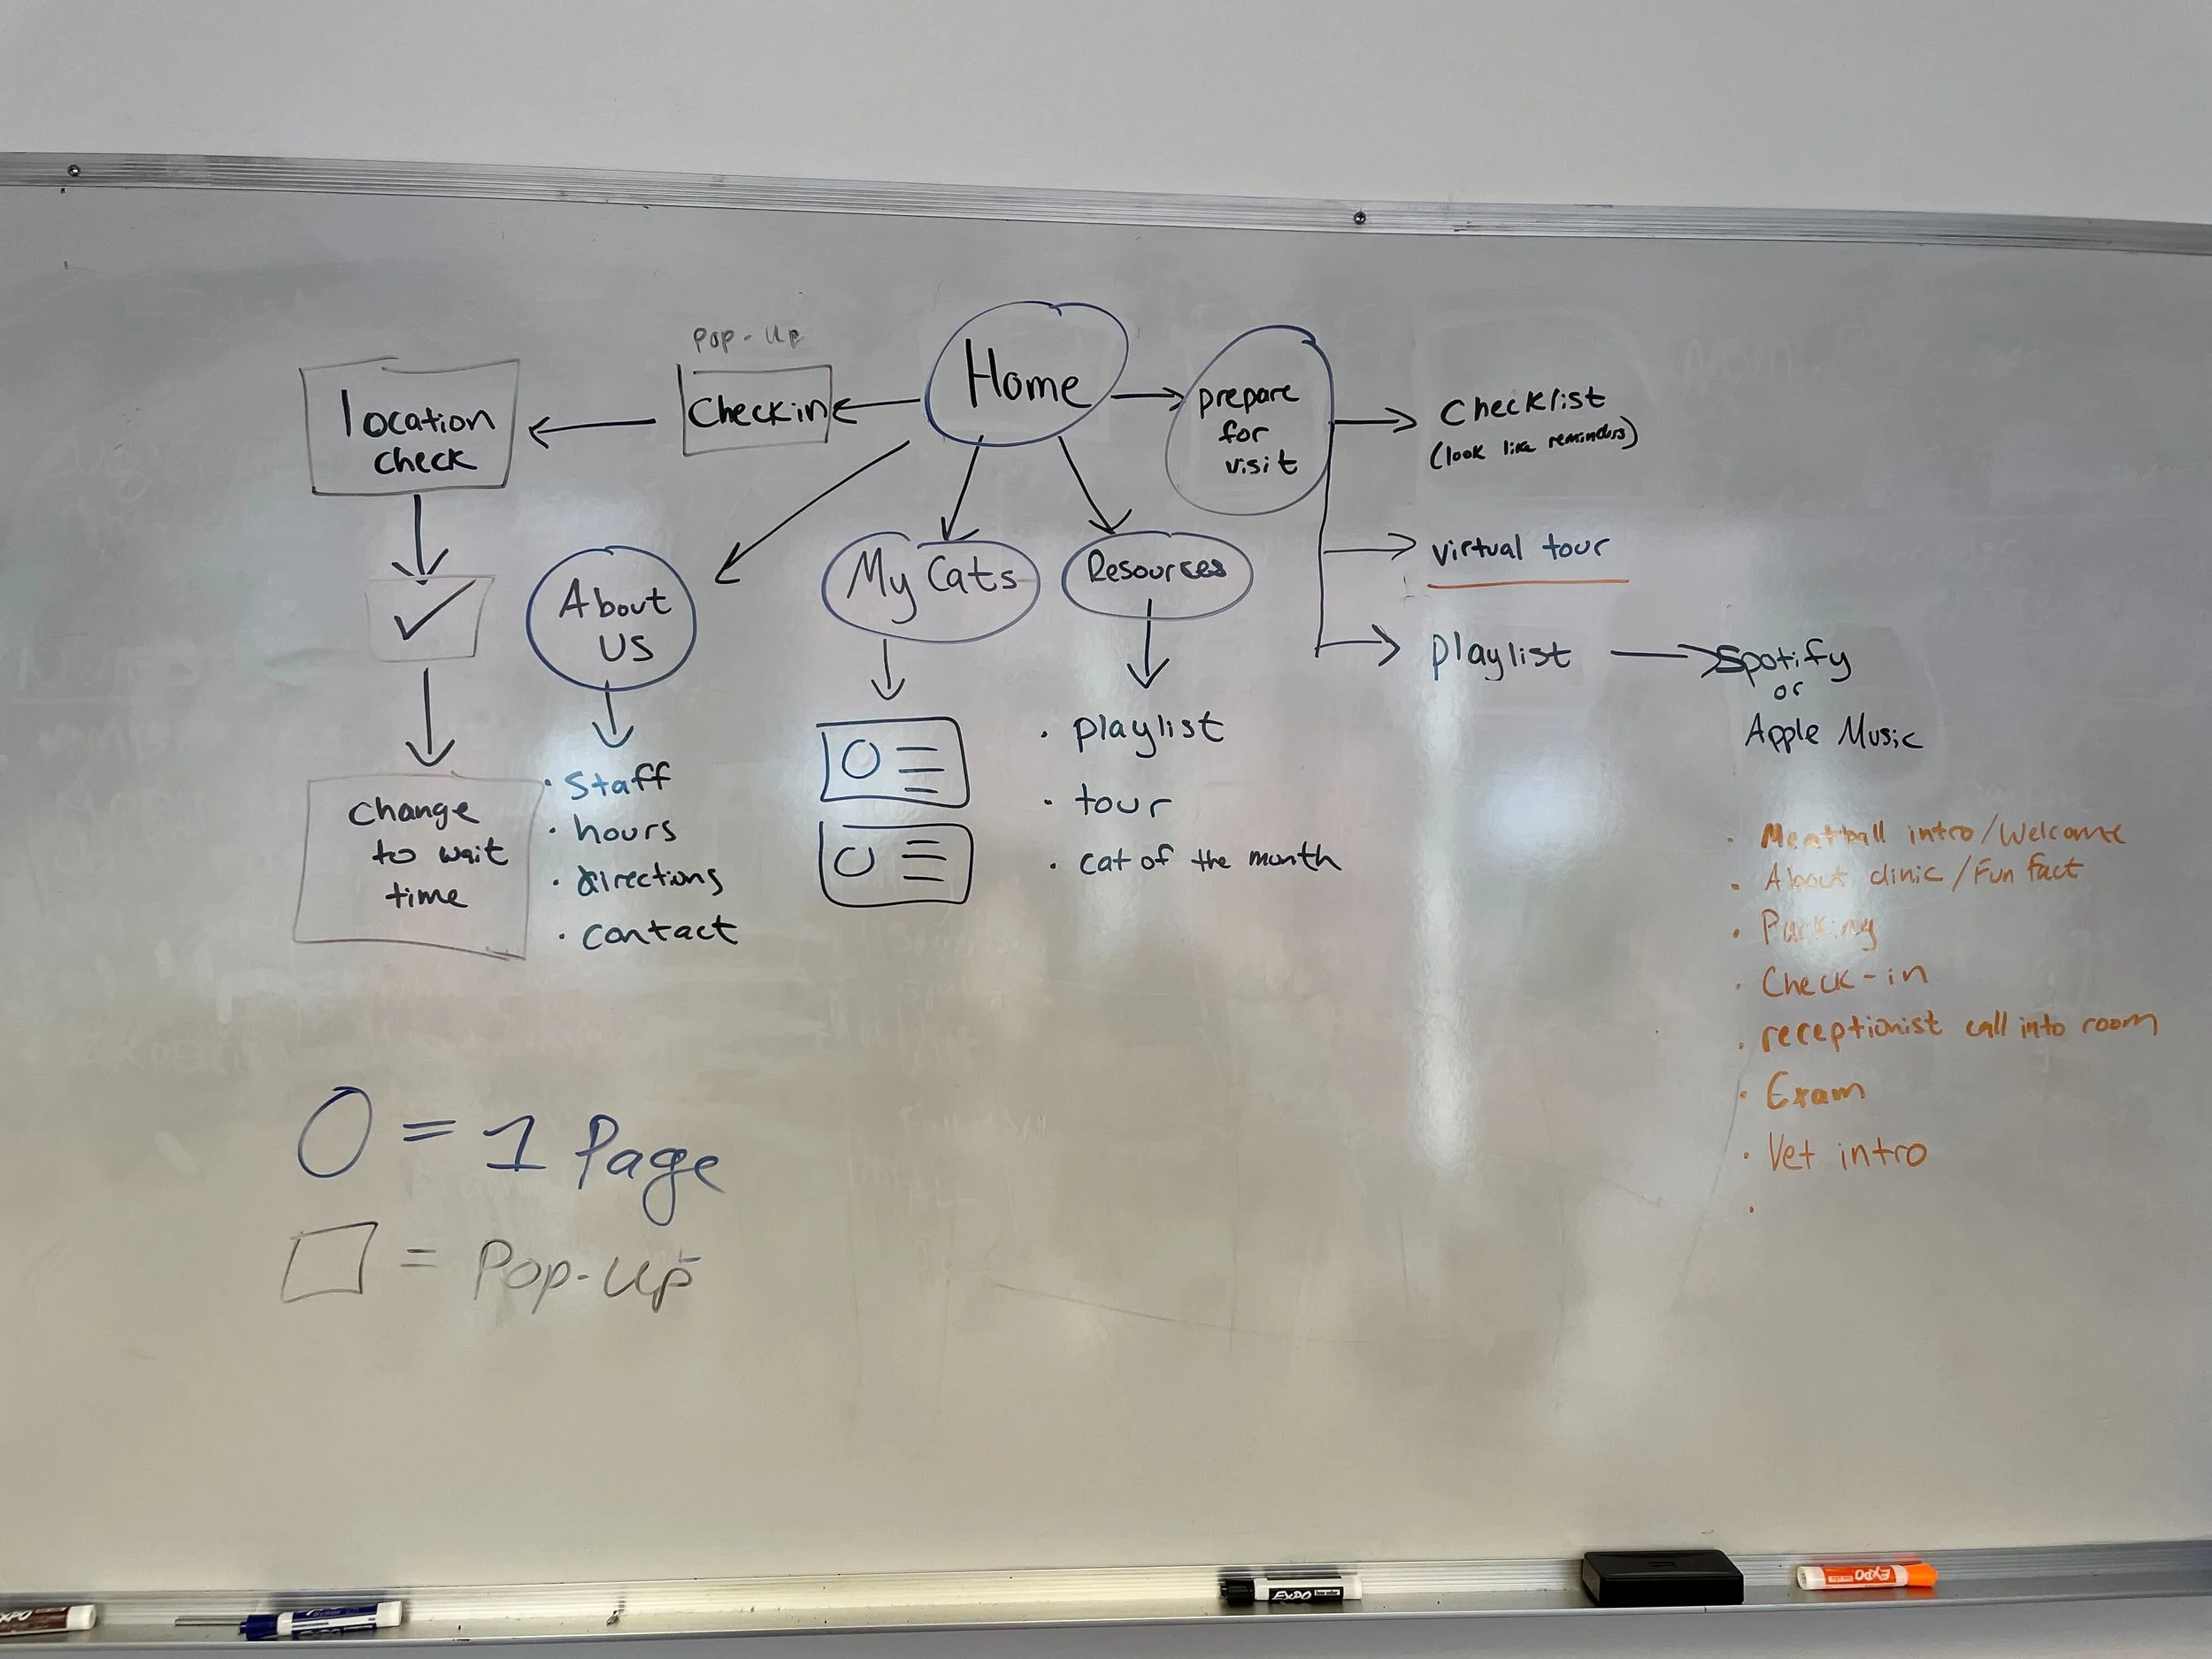 Pop-Up
Home
location
check
Checkin
prepare
for
visit
Checklist
(look like reminders)
virtual tour
playlist
Spotify
or
Apple Music
About
US
My Cats
Resources
Change
to wait
time
• Staff
• hours
• directions
• contact
• playlist
• tour
• cat of the month
• Meatball intro/Welcome
• About clinic/Fun fact
• Parking
• Check-in
• receptionist call into room
• Exam
• Vet intro
•
O = 1 Page
□ = Pop-Up
EXPO
EXPO
EXPO